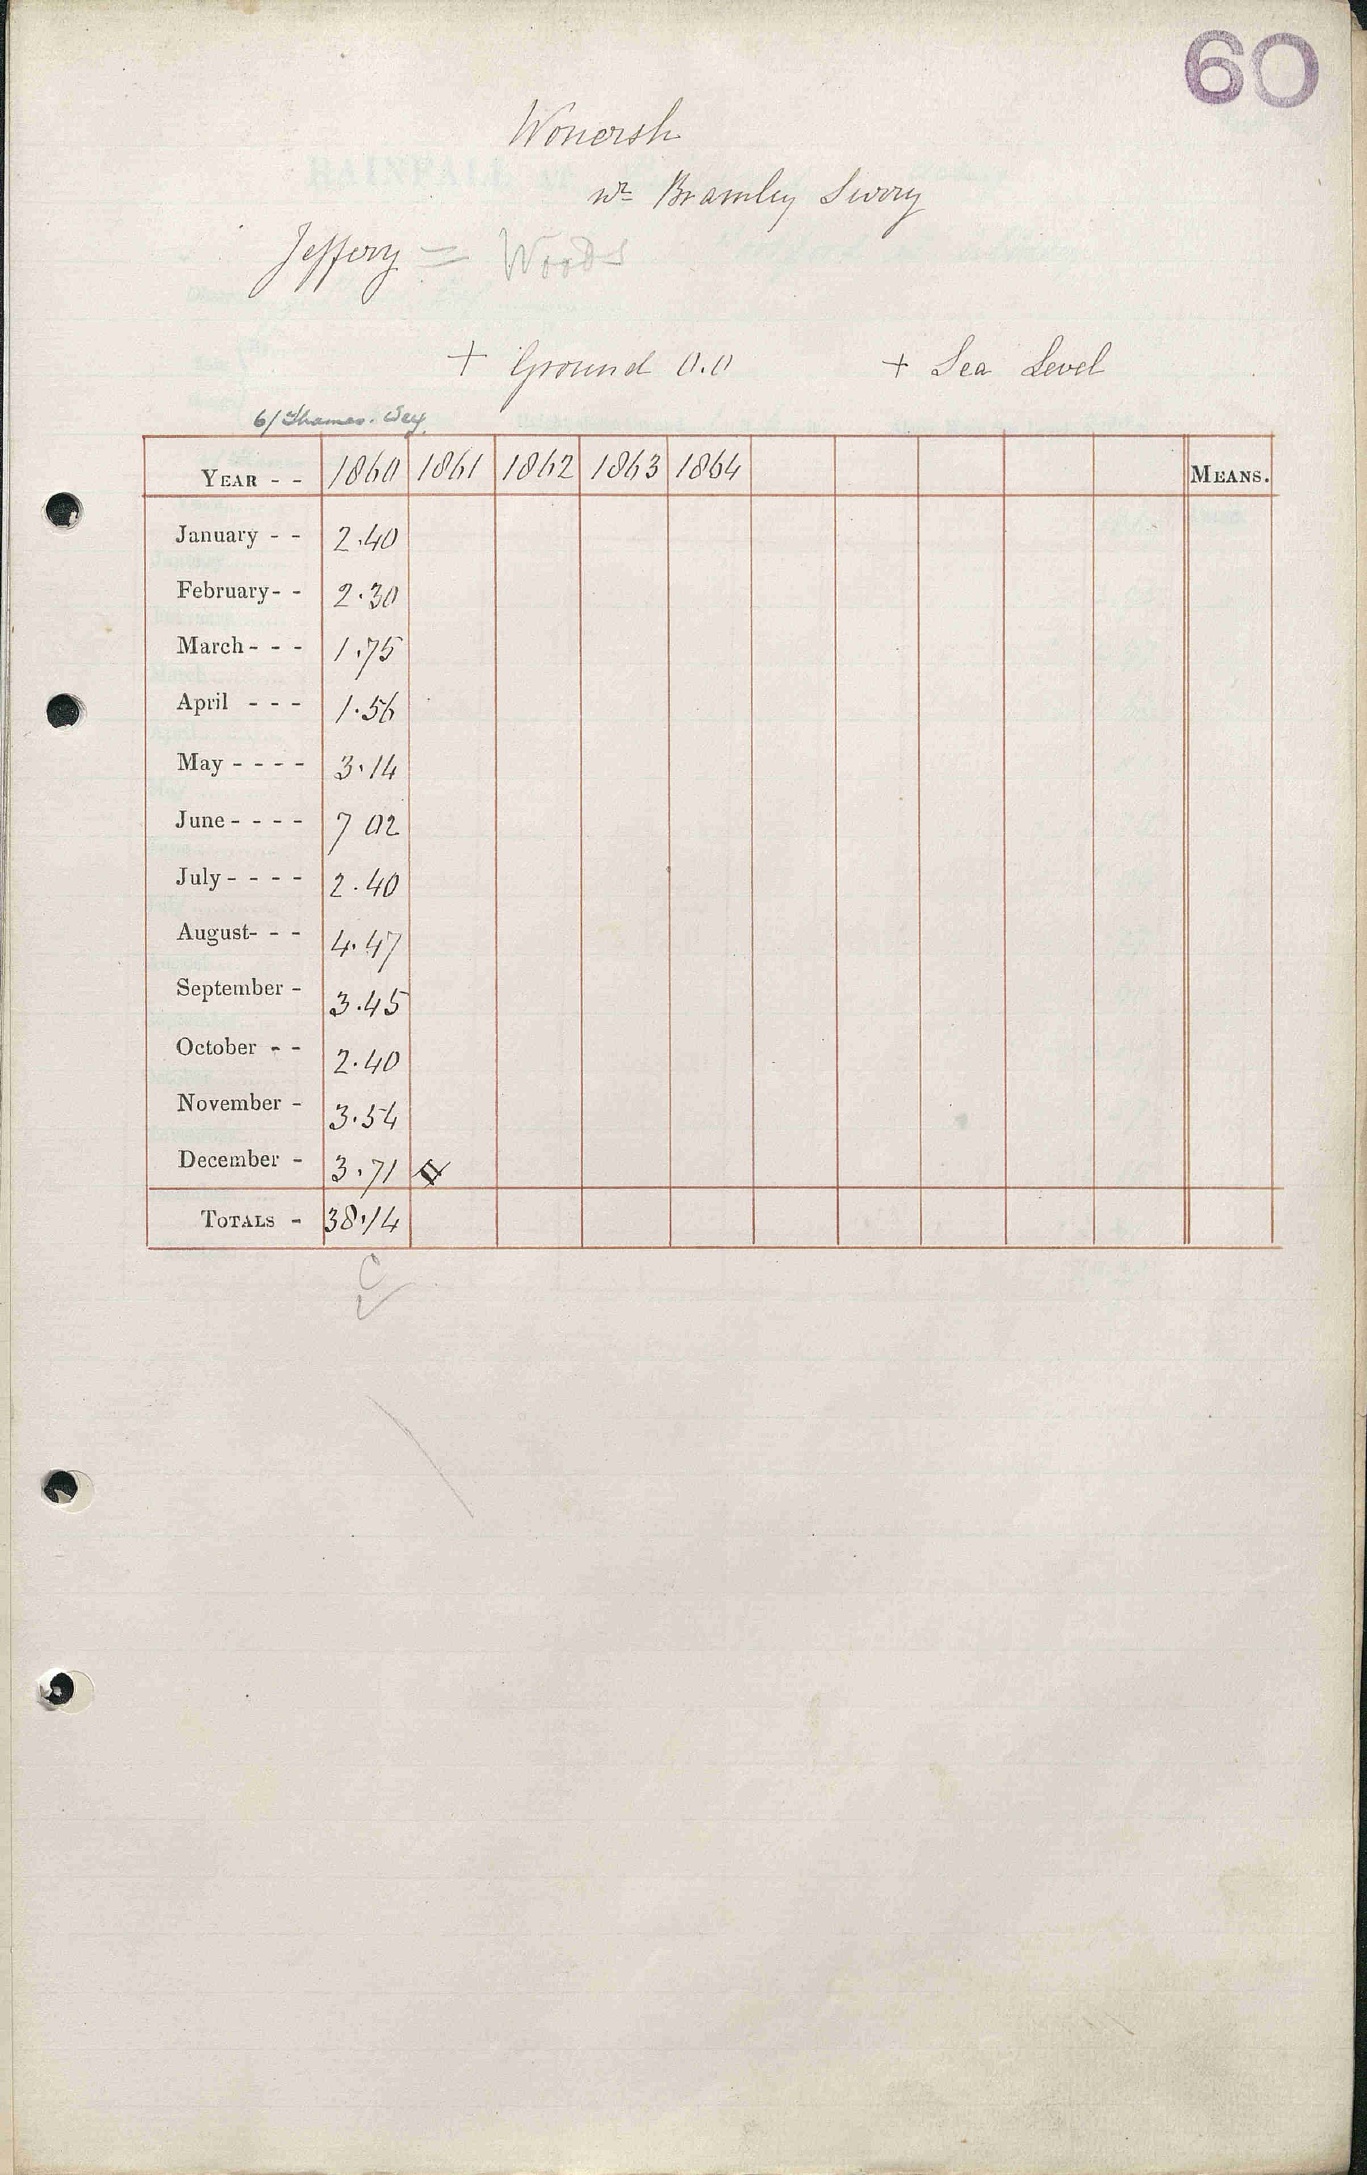 60
Wonersh
nr Bramley Surry
Jeffery = Woods
+ Ground 0.0 + Sea Level
6/ Thames. Wey.
YEAR - - 1860 1861 1862 1863 1864 MEANS.
January - - 2.40
February - - 2.30
March - - - 1.75
April - - - 1.56
May - - - - 3.14
June - - - - 7 02
July - - - - 2.40
August - - - 4.47
September - 3.45
October - - 2.40
November - 3.54
December - 3.71
TOTALS - 38.14
C